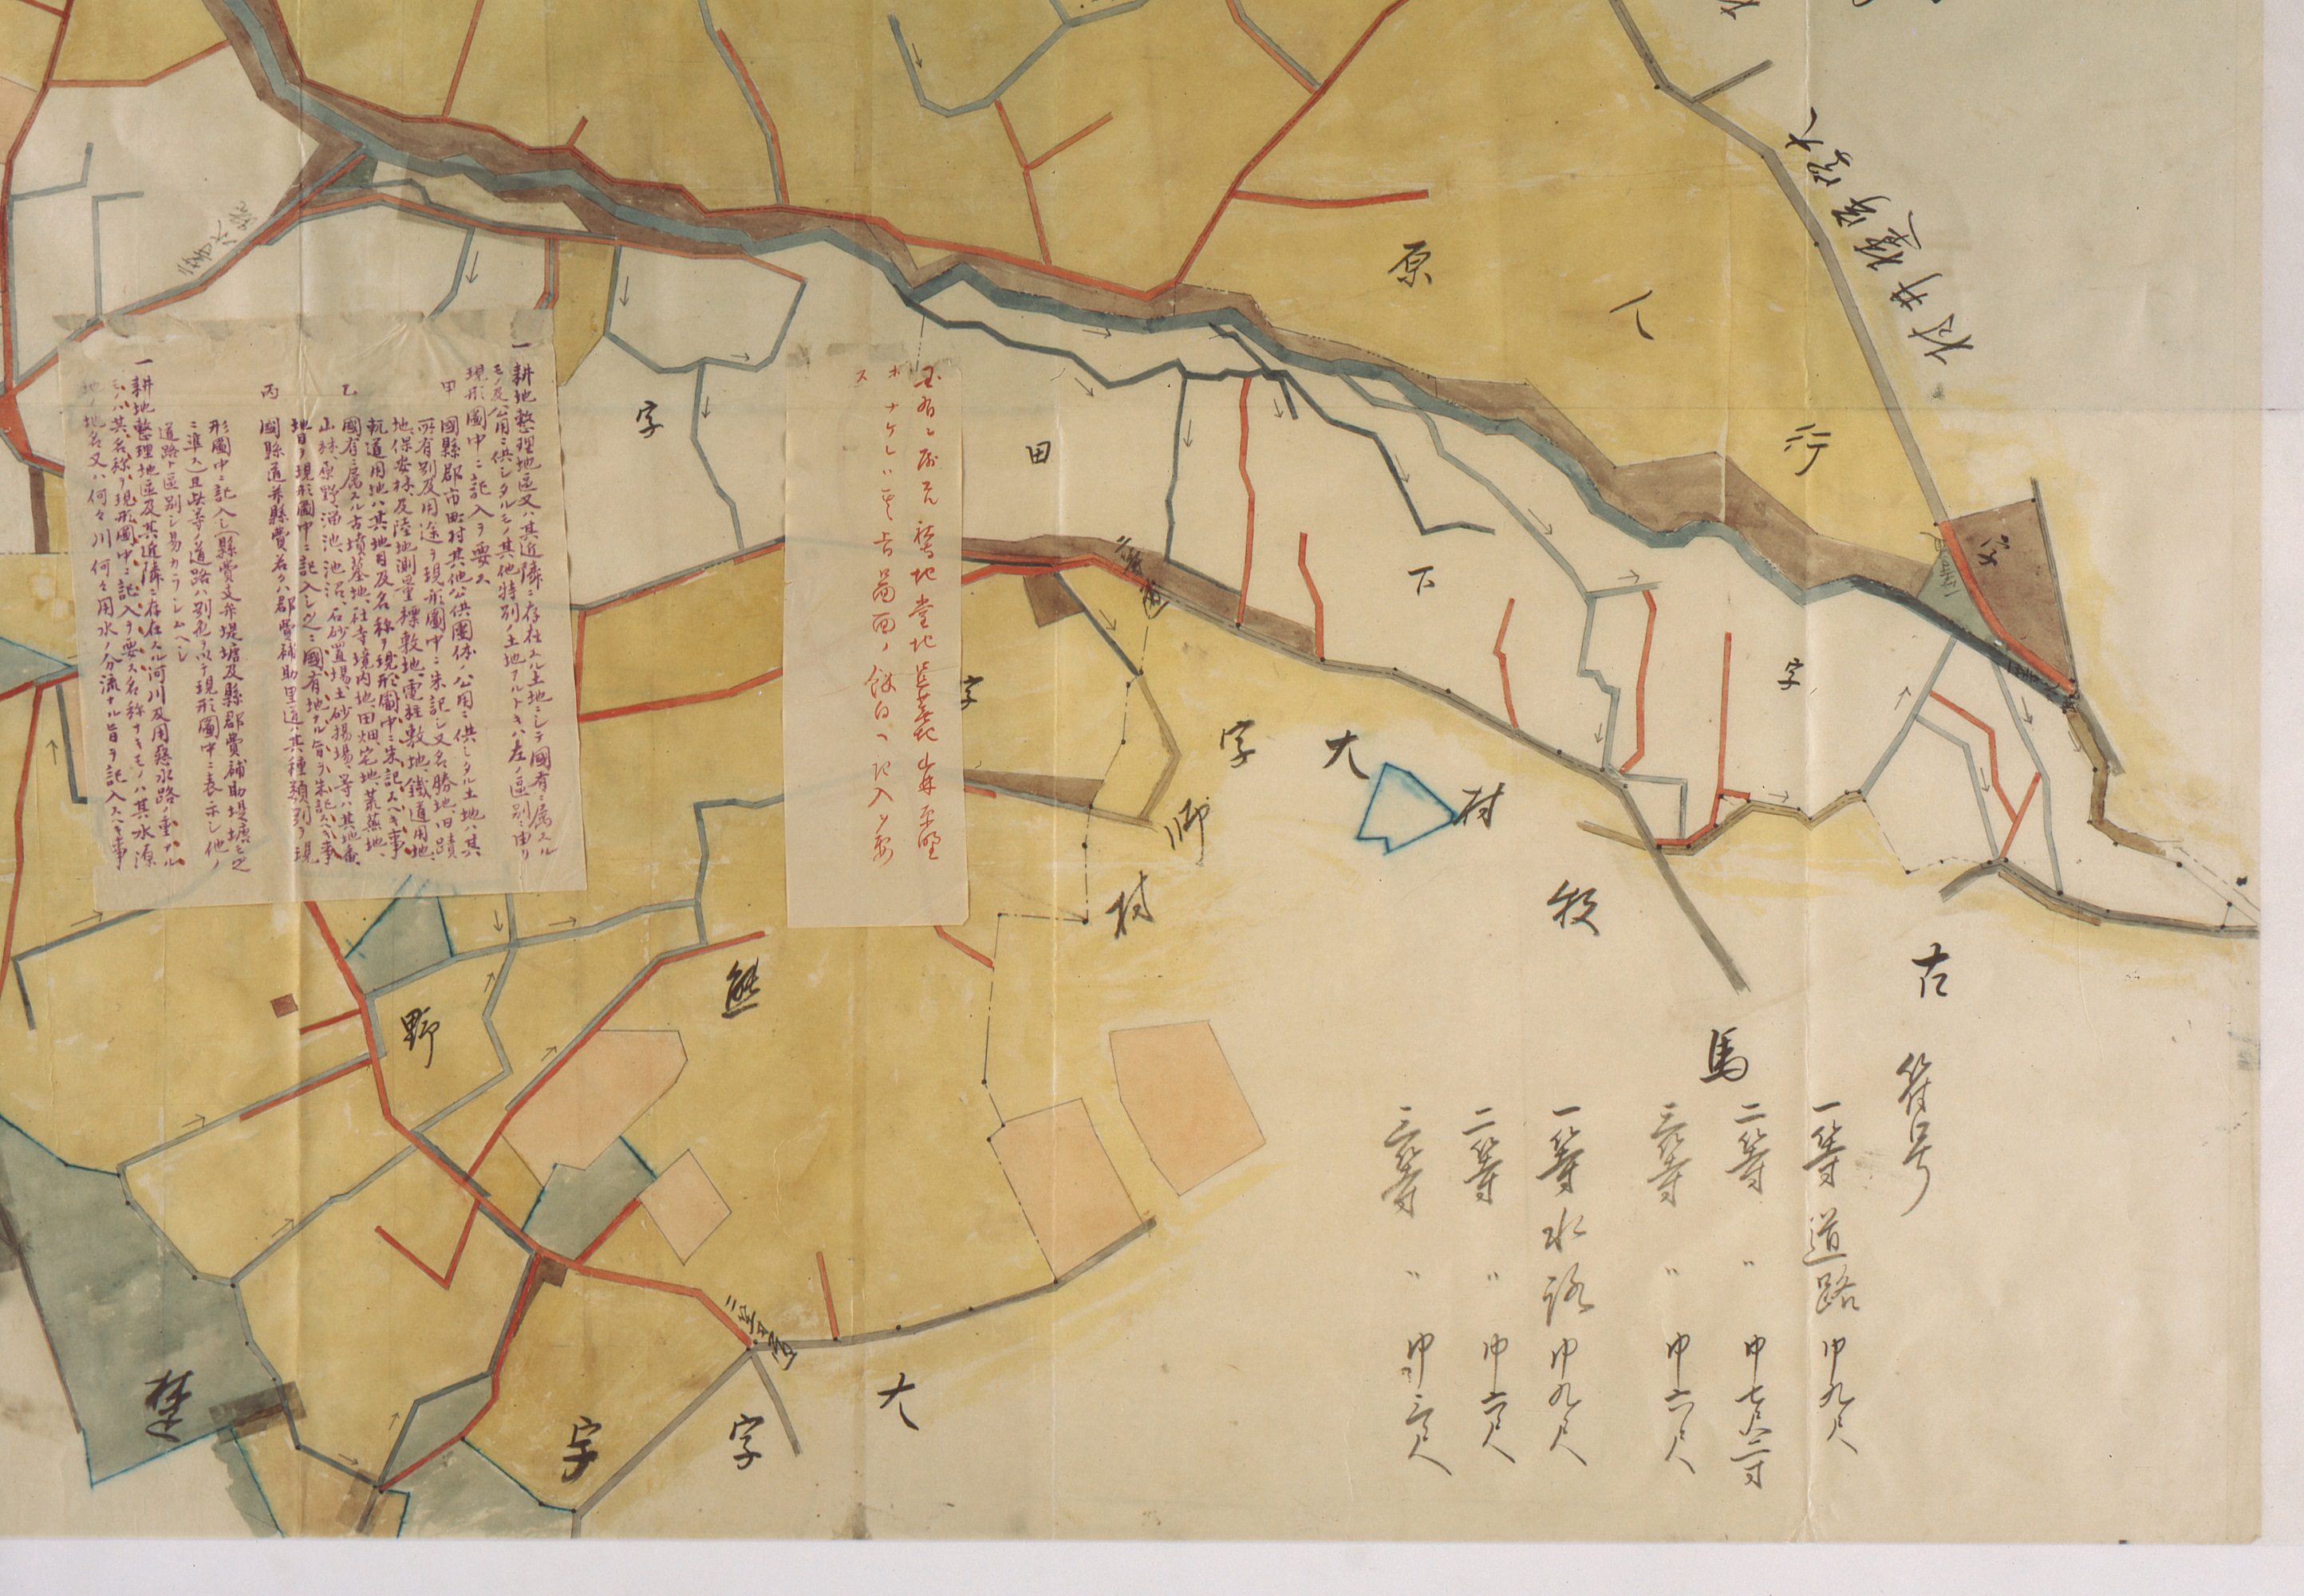 符号
一等道路巾九尺
二等〃巾七尺二寸
三等〃巾六尺
一等水路巾九尺
二等〃巾六尺
三等〃巾三尺
原
行
字
田
下
字
字
大字
村
師
村
牧
馬
古
熊
野
大
字
字
一耕地整理地區又ハ其近隣ニ存在スル土地ニシテ國有ニ属スル
モノ及公用ニ供シタルモノ其他特別ノ土地アルトキハ左ノ區別ニ由リ
現形圖中ニ記入ヲ要ス
甲 國縣郡市町村其他公供團体ノ公用ニ供シタル土地ハ其
所有別及用途ヲ現形圖中ニ朱記シ又名勝地、旧蹟
地、保安林、及陸地測量標敷地、電柱敷地、鐵道用地、
軌道用地ハ其地目及名称ヲ現形圖中ニ朱記スヘキ事
乙 國有ニ属スル古墳墓地、社寺境内地、田畑宅地、荒蕪地、
山林、原野、溜池、池沼、石砂置場土砂揚場、等ハ其地番、
地目ヲ現形圖中ニ記入シ之ニ國有地ナル旨ヲ朱記スヘキ事
丙 國縣道并縣費若クハ郡費補助里道ハ其種類別ヲ現
形圖中ニ記入シ(縣費支弁堤塘及縣郡費補助堤塘モ之
ニ準ス)且此等ノ道路ハ別色ヲ以テ現形圖中ニ表示シ他ノ
道路ト區別シ易カラシムヘシ
一耕地整理地區及其近隣ニ存在スル河川及用惡水路ノ重ナル
モノハ其名称ヲ現形圖中ニ記入ヲ要ス名称ナキモノハ其水源
地ノ地名又ハ何々川何々用水ノ分流ナル旨ヲ記入スヘキ事